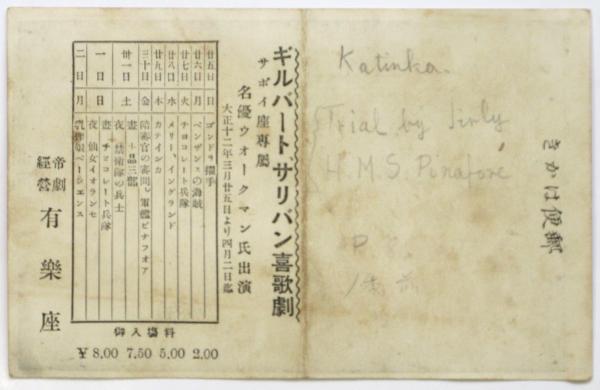 ギルバート、サリバン喜歌劇
サボイ座専屬
名優ウオークマン氏出演
大正十二年三月廿五日より四月二日迄
廿五日 日
廿六日 月 ペンザンスの海賊
廿七日 火 チヨコレート兵隊
廿八日 水 メリー、イングランド
廿九日 木 カテインカ
三十日 金 陪審官の審問、軍艦ピナフオア
卅一日 土 晝
夜 禁衛隊の兵士
一日 日 晝 チヨコレート兵隊
夜 仙女イオランセ
二日 月 乳搾娘ペーシエンス
帝劇
經營
有樂座
御入場料
¥ 8.00 7.50 5.00 2.00
Katinka.
Trial by Jury
H.M.S. Pinafore
P.
きかは便郵